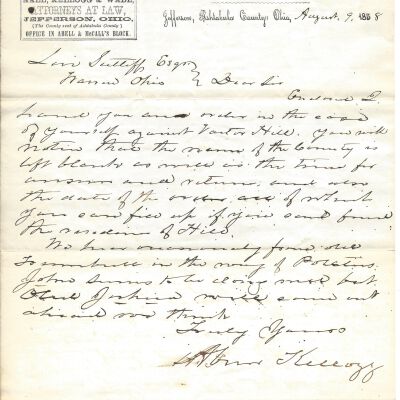 ATTORNEYS AT LAW,
JEFFERSON, OHIO,
(The County seat of Ashtabula County)
OFFICE IN ABELL & McCALL'S BLOCK.
Jefferson, Ashtabula County, Ohio, August 9, 1868
Levi Sutliff Esqr
Warren Ohio } Dear Sir
Enclosed I
hand you an order in the case
of yourself against Hill. You will
notice that the name of the County is
left blank as well as the time for
answer and return, and also
the date of the order, all of which
you can fill up if you can find
the residence of Hill.
We hear from old
Trumbull in the way of Politics
John seems to be doing well but
will come out
ahead we think
Truly Yours
Kellogg